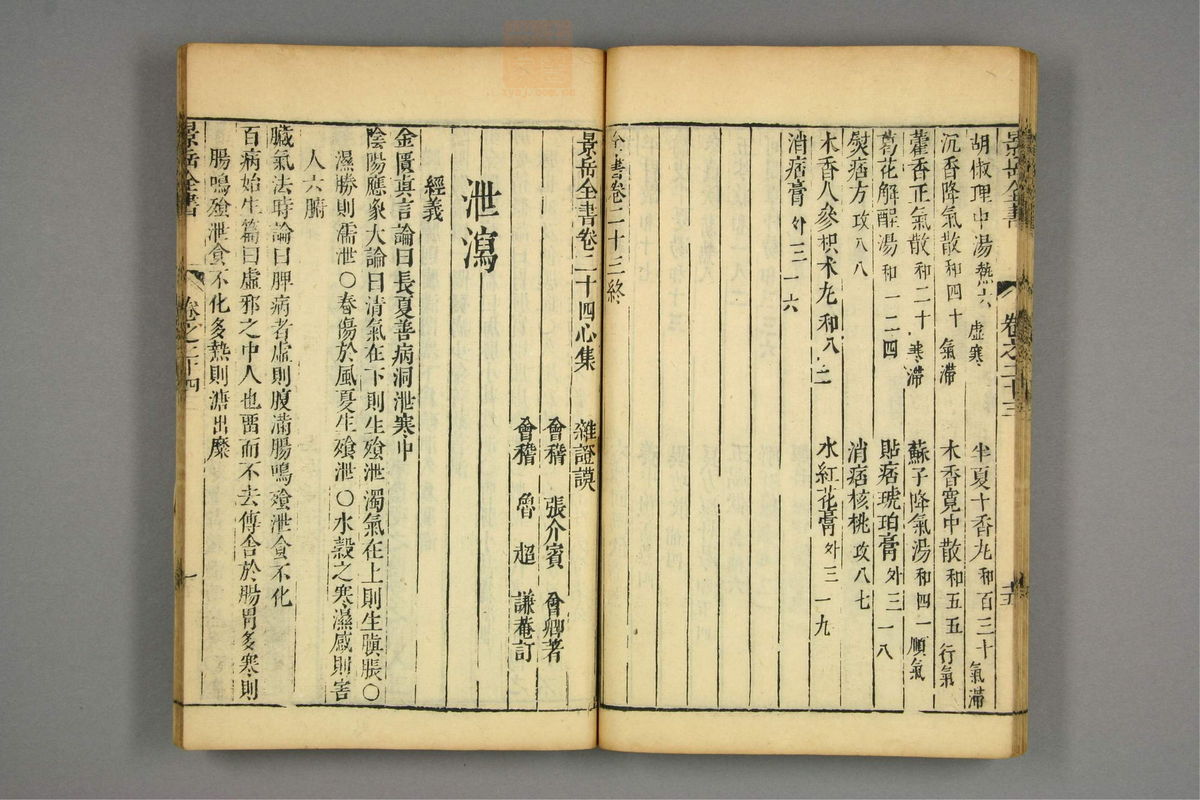 景岳全書
卷之二十三
十五
胡椒理中湯 熱六 虛寒
半夏丁香丸 和百三十 氣滯
沉香降氣散 和四十 氣滯
木香寬中散 和五五 行氣
藿香正氣散 和二十 寒滯
蘇子降氣湯 和四一 順氣
葛花解酲湯 和一二四
貼痞琥珀膏 外三一八
熨痞方 攻八八
消痞核桃 攻八七
木香人參枳朮丸 和八二
水紅花膏 外三一九
消痞膏 外三一六
全書卷二十三終
景岳全書卷二十四心集 雜證謨
會稽 張介賓 會卿著
會稽 魯超 謙菴訂
泄瀉
經義
金匱真言論曰長夏善病洞泄寒中
陰陽應象大論曰清氣在下則生飱泄濁氣在上則生䐜脹○
濕勝則濡泄○春傷於風夏生飱泄○水穀之寒濕感則害
人六腑
臟氣法時論曰脾病者虛則腹滿腸鳴飱泄食不化
百病始生篇曰虛邪之中人也留而不去傳舍於腸胃多寒則
腸鳴飱泄食不化多熱則溏出糜
景岳全書
卷之二十四
一